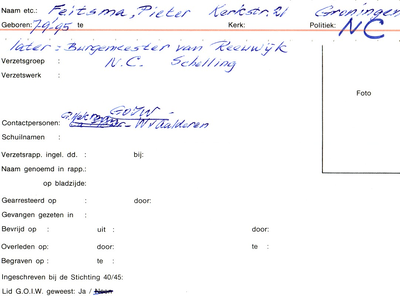 Naam etc.: Feitsma, Pieter Kerkstr. 21 Groningen
Geboren: 7-9-'95 te Kerk: Politiek: NC
later: Burgemeester van Reeuwijk
Verzetsgroep : N.C. Schelling
Verzetswerk :
Foto
GOIW
Contactpersonen: W v Aalderen
Schuilnaam :
Verzetsrapp. ingel. dd. : bij:
Naam genoemd in rapp.:
op bladzijde:
Gearresteerd op : door:
Gevangen gezeten in :
Bevrijd op : uit : door:
Overleden op: door: te :
Begraven op : te :
Ingeschreven bij de Stichting 40/45:
Lid G.O.I.W. geweest: Ja / Neen